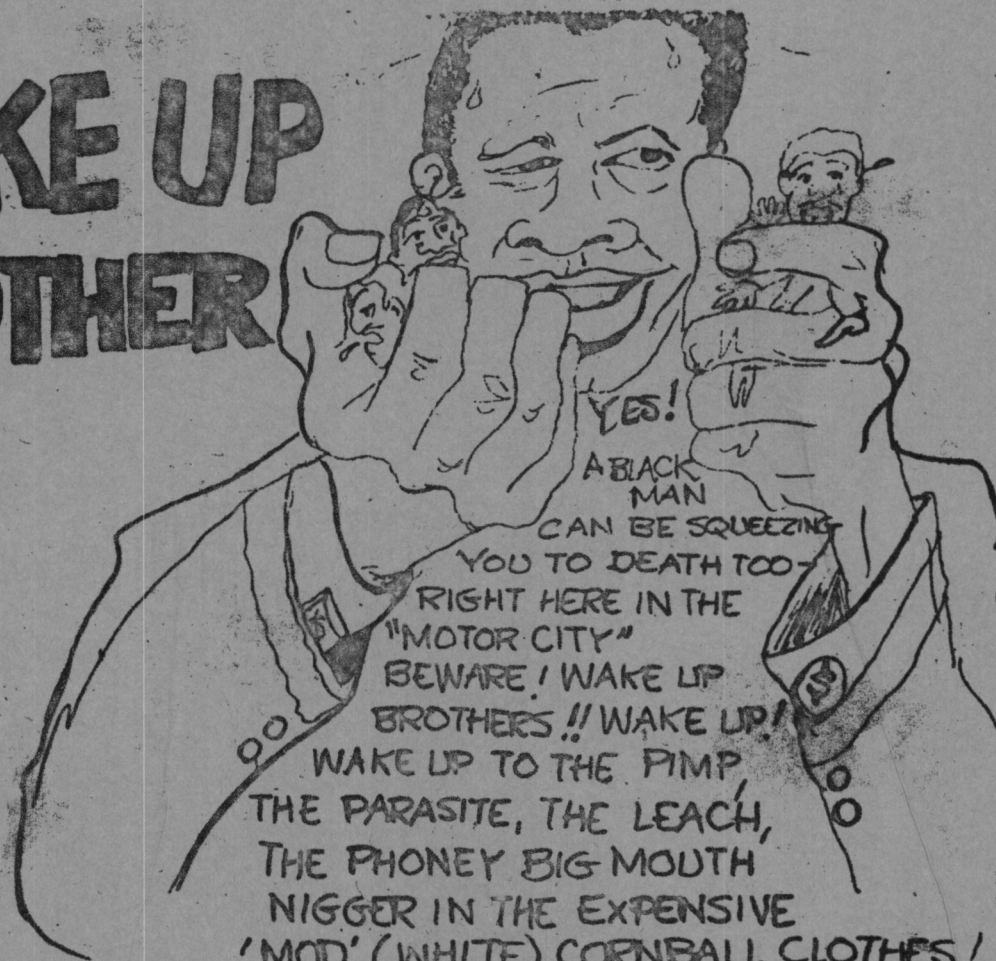 KE UP
OTHER
YES!
A BLACK
MAN
CAN BE SQUEEZING
YOU TO DEATH TOO-
RIGHT HERE IN THE
"MOTOR CITY"
BEWARE! WAKE UP
BROTHERS!! WAKE UP!
WAKE UP TO THE PIMP,
THE PARASITE, THE LEACH,
THE PHONEY BIG MOUTH
NIGGER IN THE EXPENSIVE
'MOD' (WHITE) CORNBALL CLOTHES!
$
$